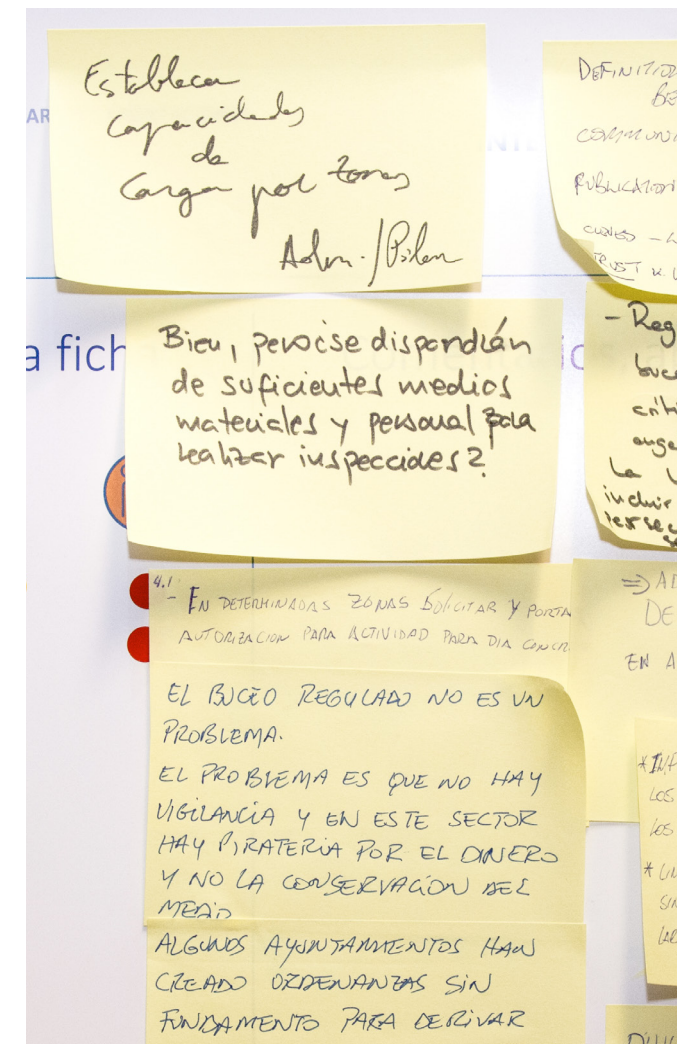 Establecer
Capacidades
de
Carga por zonas
Adm. /
Bien, pero ¿se dispondrán
de suficientes medios
materiales y personal para
realizar inspecciones?
a fich
4.1
- EN DETERMINADAS ZONAS SOLICITAR Y PORTA
AUTORIZACION PARA ACTIVIDAD PARA DIA CONCR
EL BUCEO REGULADO NO ES UN
PROBLEMA.
EL PROBLEMA ES QUE NO HAY
VIGILANCIA Y EN ESTE SECTOR
HAY PIRATERIA POR EL DINERO
Y NO LA CONSERVACION DEL
MEDIO
ALGUNOS AYUNTAMIENTOS HAN
CREADO ORDENANZAS SIN
FUNDAMENTO PARA DERIVAR
DEFINITIO
BE
COMMUNI
PUBLICATION
TRUST
- Reg
buce
criti
La
incluir
=> AD
DE
EN A
* INF
LOS
LOS
* UN
SIN